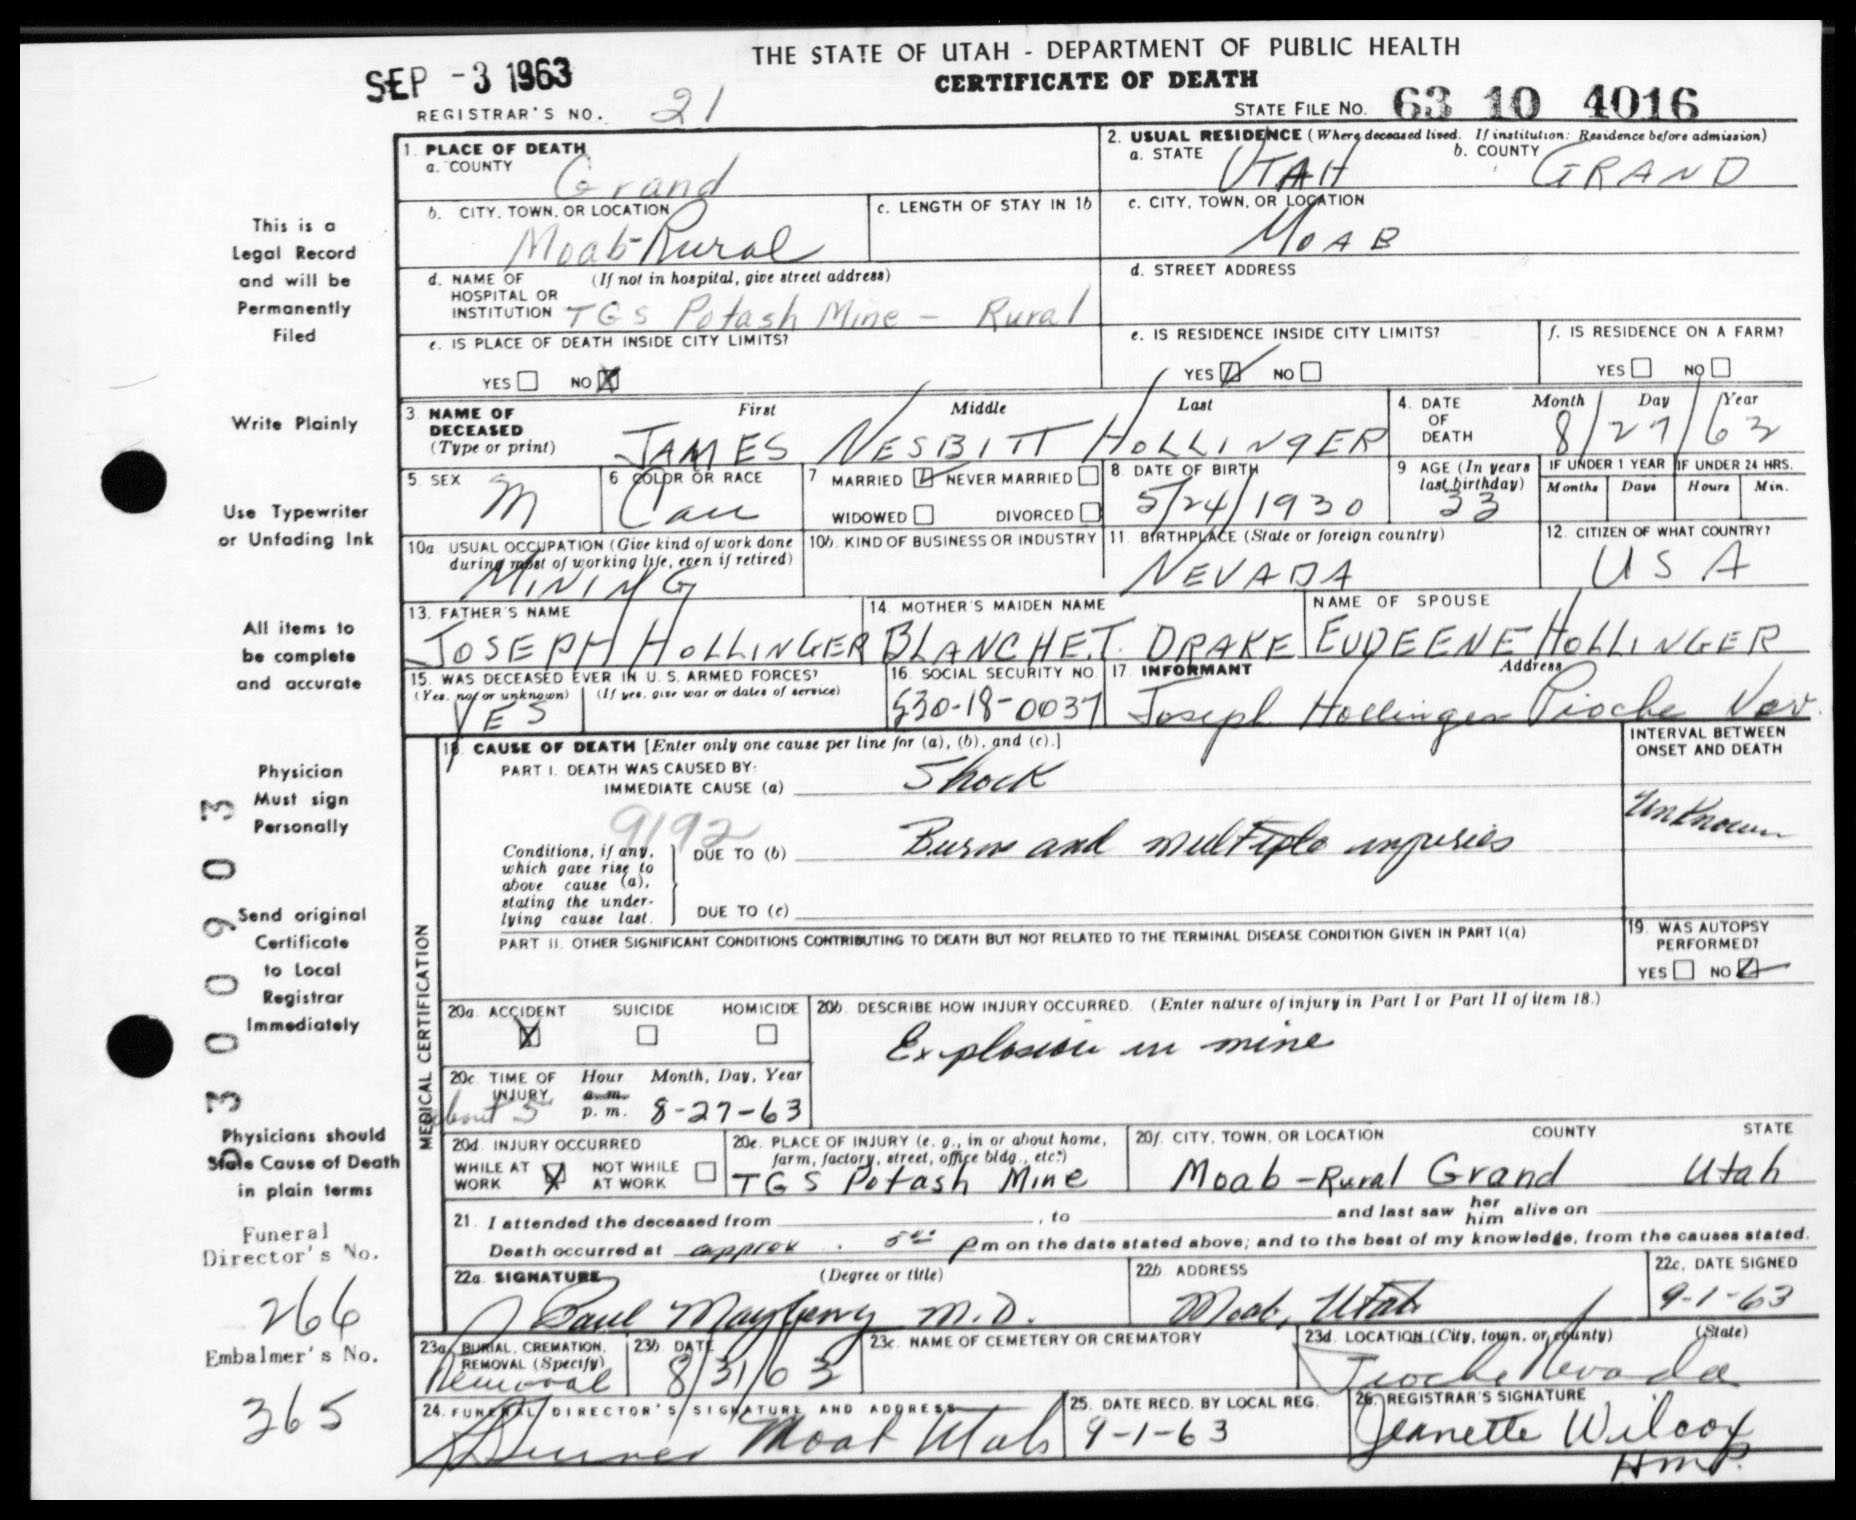 THE STATE OF UTAH - DEPARTMENT OF PUBLIC HEALTH
CERTIFICATE OF DEATH
SEP -3 1963
REGISTRAR'S NO. 21
STATE FILE NO. 63 10 4016
This is a
Legal Record
and will be
Permanently
Filed
Write Plainly
Use Typewriter
or Unfading Ink
All items to
be complete
and accurate
Physician
Must sign
Personally
Send original
Certificate
to Local
Registrar
Immediately
Physicians should
State Cause of Death
in plain terms
Funeral
Director's No.
266
Embalmer's No.
365
1. PLACE OF DEATH
a. COUNTY Grand
b. CITY, TOWN, OR LOCATION Moab-Rural
c. LENGTH OF STAY IN 1b
d. NAME OF HOSPITAL OR INSTITUTION (If not in hospital, give street address) TGS Potash Mine - Rural
e. IS PLACE OF DEATH INSIDE CITY LIMITS?
YES NO X
2. USUAL RESIDENCE (Where deceased lived. If institution: Residence before admission)
a. STATE UTAH b. COUNTY GRAND
c. CITY, TOWN, OR LOCATION MOAB
d. STREET ADDRESS
e. IS RESIDENCE INSIDE CITY LIMITS?
YES NO
f. IS RESIDENCE ON A FARM?
YES NO
3. NAME OF DECEASED (Type or print) First Middle Last
JAMES NESBITT HOLLINGER
4. DATE OF DEATH Month Day Year
8/27/63
5. SEX M
6 COLOR OR RACE Cau
7 MARRIED NEVER MARRIED
WIDOWED DIVORCED
8 DATE OF BIRTH 5/24/1930
9 AGE (In years last birthday) 33
IF UNDER 1 YEAR IF UNDER 24 HRS.
Months Days Hours Min.
10a. USUAL OCCUPATION (Give kind of work done during most of working life, even if retired) MINING
10b. KIND OF BUSINESS OR INDUSTRY
11. BIRTHPLACE (State or foreign country) NEVADA
12. CITIZEN OF WHAT COUNTRY? USA
13. FATHER'S NAME JOSEPH HOLLINGER
14. MOTHER'S MAIDEN NAME BLANCHE T. DRAKE
NAME OF SPOUSE EUDEENE HOLLINGER
15. WAS DECEASED EVER IN U. S. ARMED FORCES?
(Yes, no, or unknown) (If yes, give war or dates of service)
YES
16. SOCIAL SECURITY NO. 530-18-0037
17. INFORMANT Address
Joseph Hollinger Pioche Nev.
18. CAUSE OF DEATH [Enter only one cause per line for (a), (b), and (c).]
INTERVAL BETWEEN ONSET AND DEATH
PART I. DEATH WAS CAUSED BY:
IMMEDIATE CAUSE (a) Shock
9192
Conditions, if any, which gave rise to above cause (a), stating the underlying cause last.
DUE TO (b) Burns and multiple injuries
Unknown
DUE TO (c)
PART II. OTHER SIGNIFICANT CONDITIONS CONTRIBUTING TO DEATH BUT NOT RELATED TO THE TERMINAL DISEASE CONDITION GIVEN IN PART I(a)
19. WAS AUTOPSY PERFORMED?
YES NO
MEDICAL CERTIFICATION
20a. ACCIDENT X SUICIDE HOMICIDE
20b. DESCRIBE HOW INJURY OCCURRED. (Enter nature of injury in Part I or Part II of item 18.)
Explosion in mine
20c. TIME OF INJURY Hour Month, Day, Year
about 5 a.m. p.m. 8-27-63
20d. INJURY OCCURRED
WHILE AT WORK X NOT WHILE AT WORK
20e. PLACE OF INJURY (e. g., in or about home, farm, factory, street, office bldg., etc.)
TGS Potash Mine
20f. CITY, TOWN, OR LOCATION COUNTY STATE
Moab-Rural Grand Utah
21. I attended the deceased from , to and last saw her him alive on
Death occurred at approx. 5 00 p m on the date stated above; and to the best of my knowledge, from the causes stated.
22a. SIGNATURE (Degree or title)
J Paul Mayberry M.D.
22b ADDRESS Moab, Utah
22c. DATE SIGNED 9-1-63
23a BURIAL, CREMATION, REMOVAL (Specify) Removal
23b DATE 8/31/63
23c. NAME OF CEMETERY OR CREMATORY
23d. LOCATION (City, town, or county) (State)
Pioche Nevada
24. FUNERAL DIRECTOR'S SIGNATURE AND ADDRESS
Moab Utah
25. DATE RECD. BY LOCAL REG. 9-1-63
26. REGISTRAR'S SIGNATURE
Jeanette Wilcox
H.m.P.